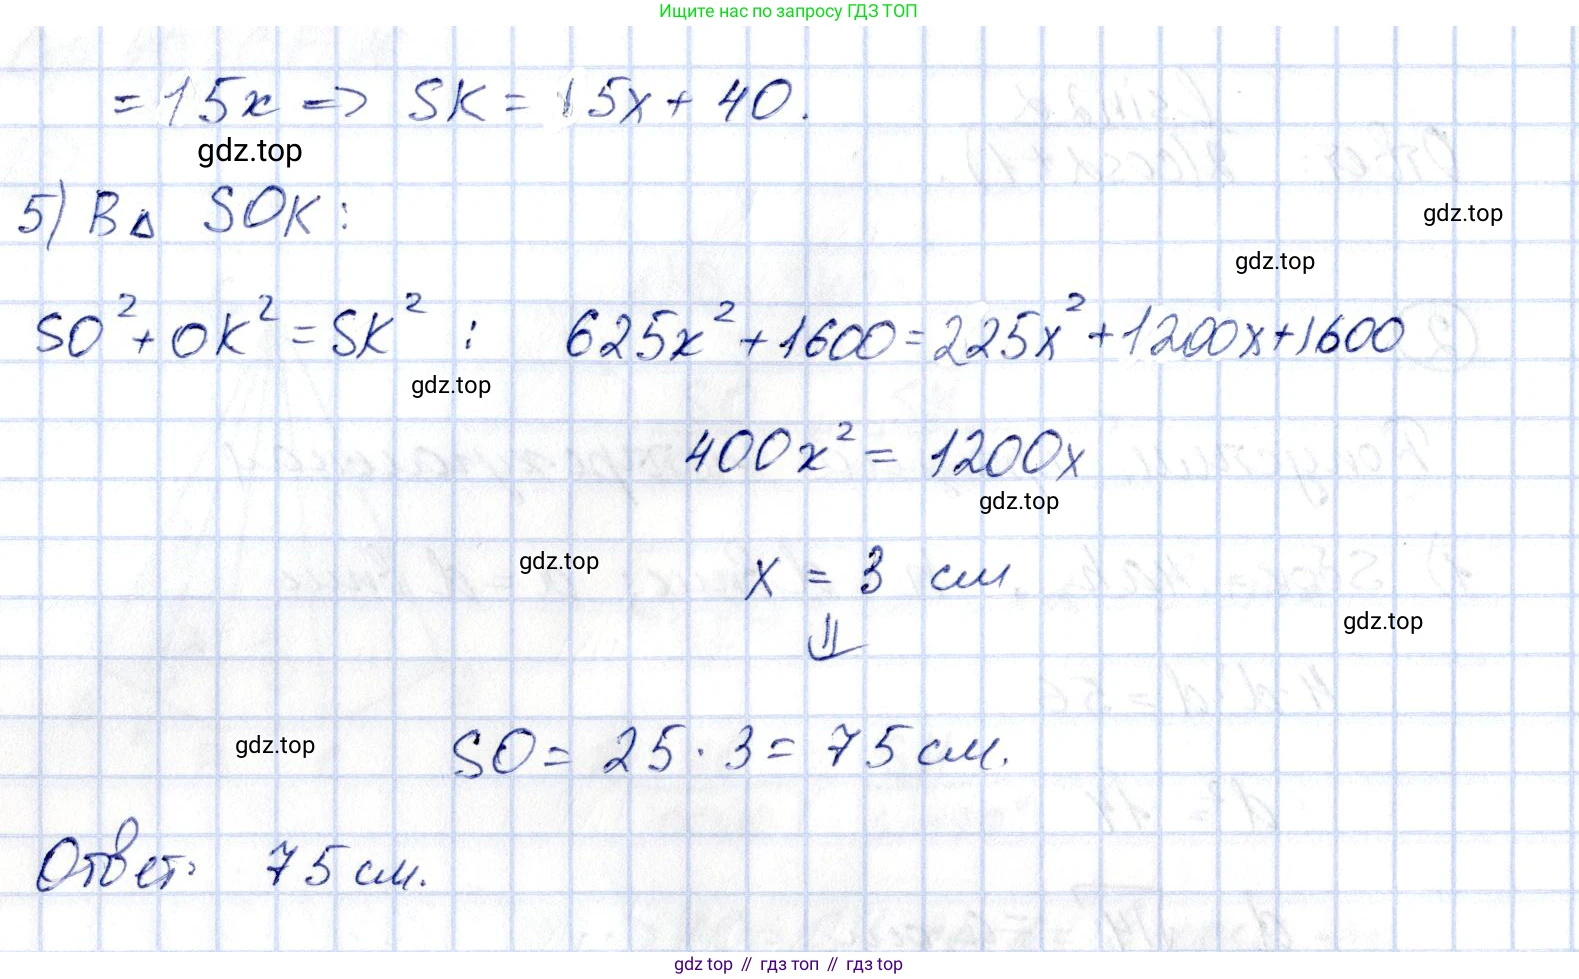 Ищите нас по запросу ГДЗ ТОП
= 15x => SK = 15x + 40.
gdz.top
5) В △ SOK:
gdz.top
gdz.top
SO² + OK² = SK² : 625x² + 1600 = 225x² + 1200x + 1600
gdz.top
400x² = 1200x
gdz.top
gdz.top
x = 3 см.
gdz.top
⇓
gdz.top
SO = 25 · 3 = 75 см.
Ответ: 75 см.
gdz top // гдз топ // гдз top